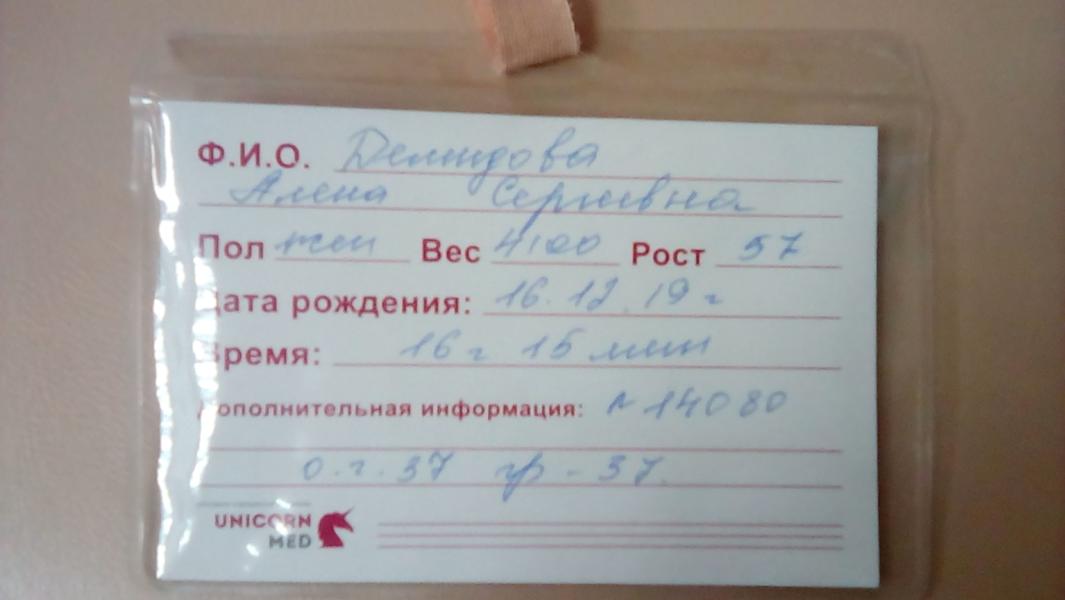 Ф.И.О. Демидова
Алена Сергеевна
Пол жен Вес 4100 Рост 57
Дата рождения: 16.12.19 г
Время: 16 г 15 мин
Дополнительная информация: N 14080
о.г. 37 гр - 37.
UNICORN
MED